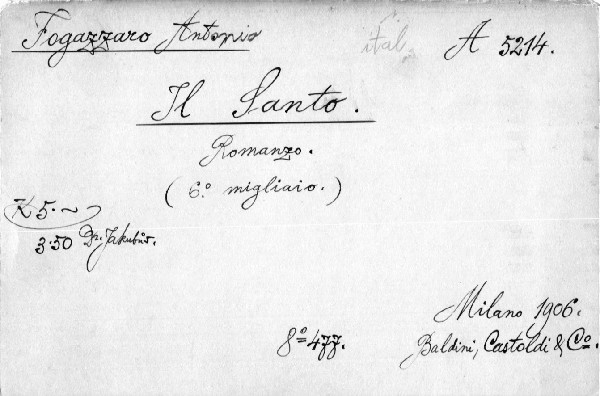 Fogazzaro Antonio ital. A 5214.
Il Santo.
Romanzo.
(6.º migliaio.)
K 5.~
3.50 Dr. Jakubův.
Milano 1906.
8º 477. Baldini, Castoldi & Cº.